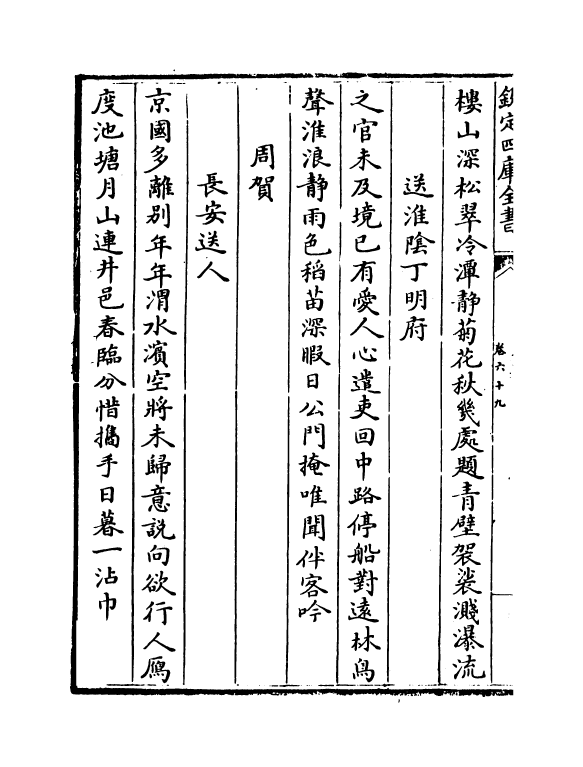 欽定四庫全書
卷六十九
樓山深松翠冷潭靜菊花秋幾處題青壁袈裟濺瀑流
送淮隂丁明府
之官未及境已有愛人心遣吏回中路停船對遠林鳥
聲淮浪靜雨色稻苗深暇日公門掩唯聞伴客吟
周賀
長安送人
京國多離別年年渭水濱空將未歸意説向欲行人鴈
度池塘月山連井邑春臨分惜攜手日暮一沾巾